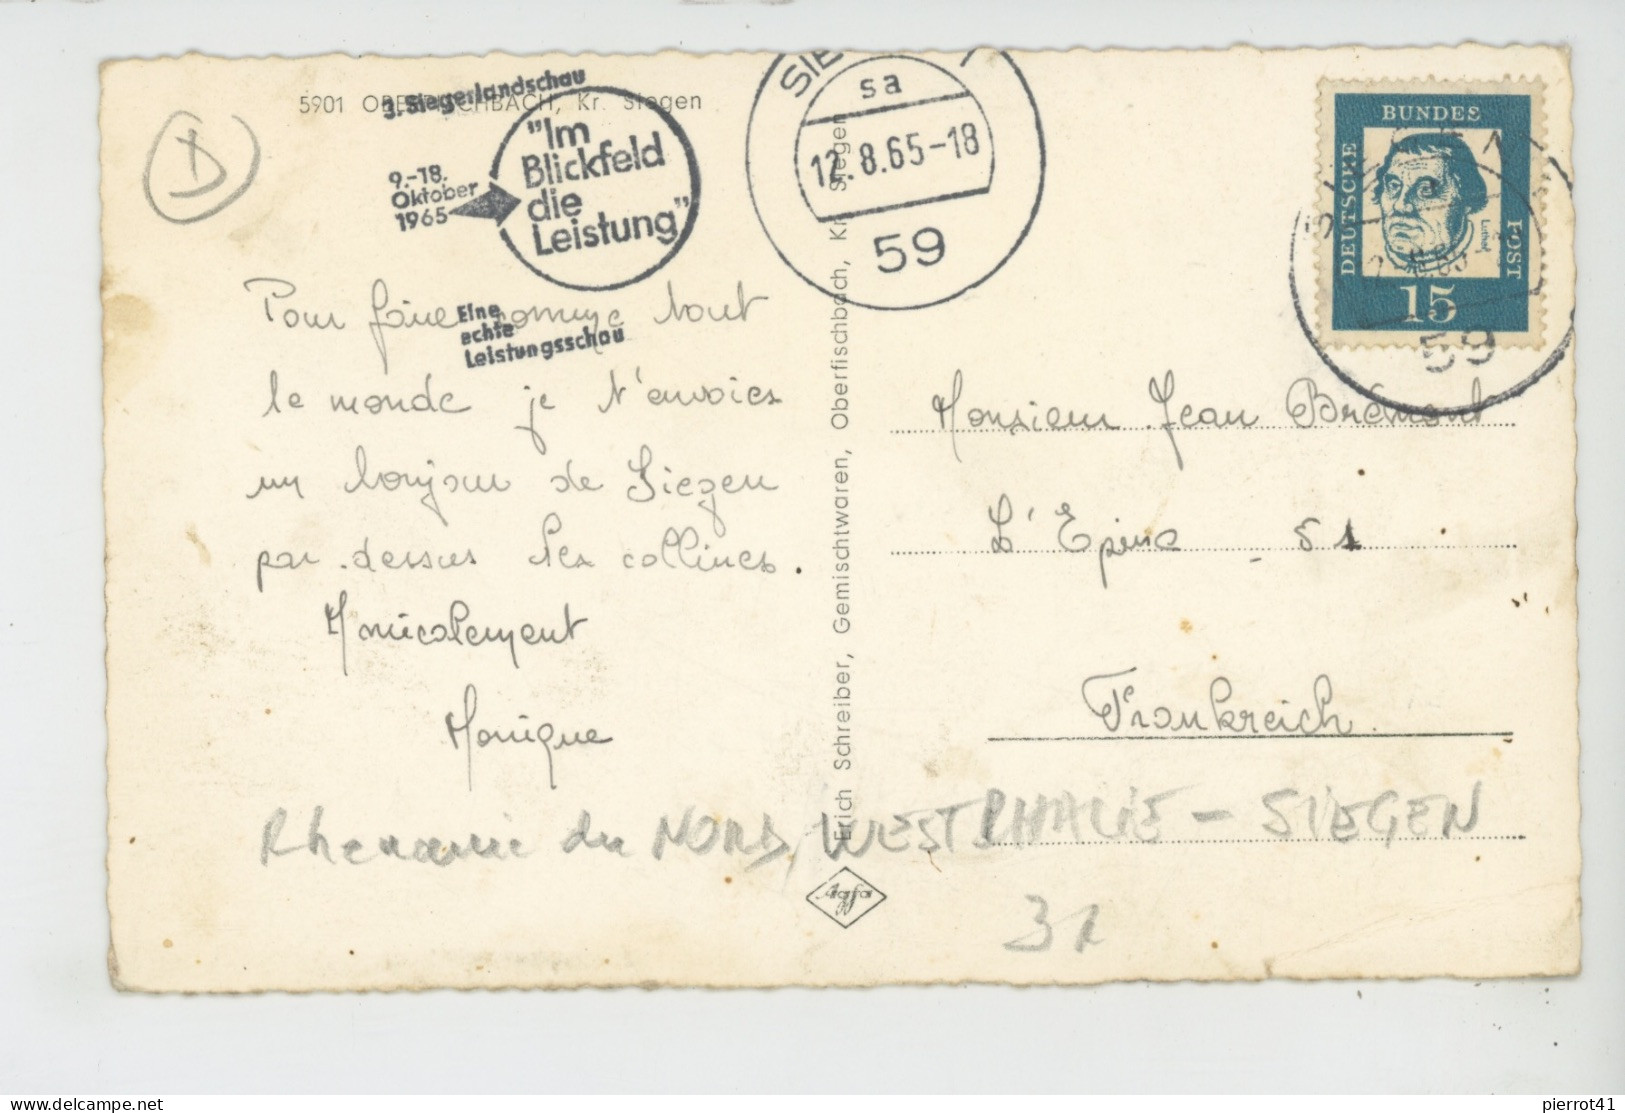 5901 OBERFISCHBACH, Kr. Siegen
3. Siegerlandschau
9.-18.
Oktober
1965
"Im
Blickfeld
die
Leistung"
Eine
echte
Leistungsschau
sa
12.8.65-18
59
BUNDES
DEUTSCHE
POST
Luther
15
59
D
Pour faire comme tout
le monde je t'envoies
un bonjour de Siegen
par dessus les collines.
Amicalement
Monique
Erich Schreiber, Gemischtwaren, Oberfischbach, Kr. Siegen
Monsieur Jean Brémont
L'Epine - 51
Frankreich
Rhenanie du NORD WESTPHALIE - SIEGEN
Agfa
31
pierrot41